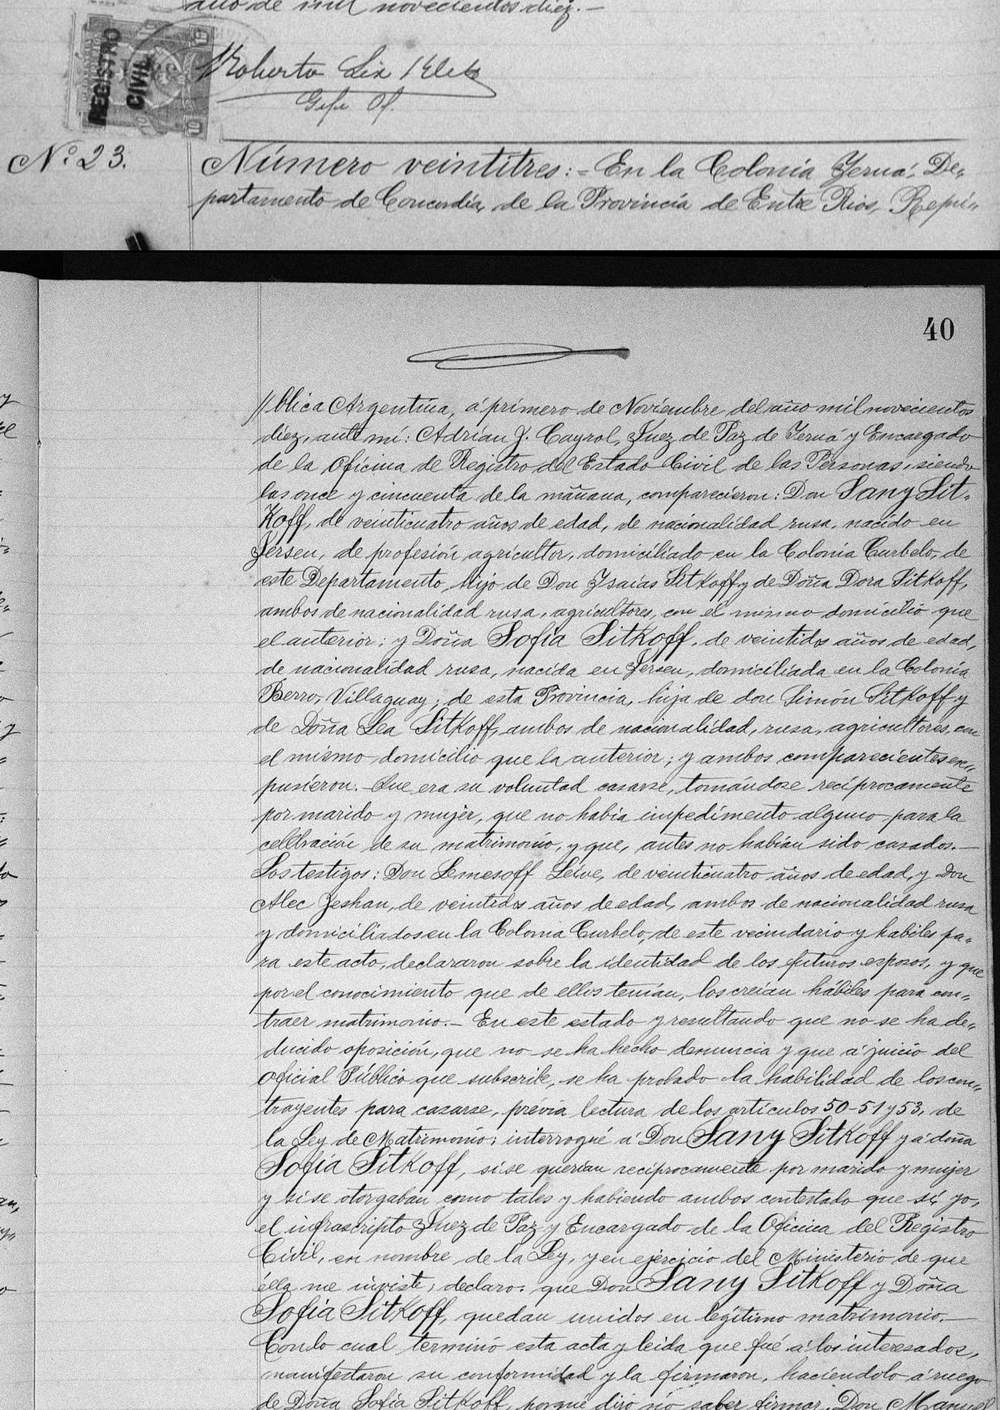 año de mil novecientos diez.—
REGISTRO
CIVIL
10
10
Roberto
Gefe Of.
Nº. 23.
Número veintitres:- En la Colonia Yeruá, De=
partamento de Concordia, de la Provincia de Entre Rios, Repú=
40
//blica Argentina, á primero de Noviembre del año mil novecientos
diez, ante mí: Adrian J. Cayrol, Juez de Paz de Yeruá y Encargado
de la Oficina de Registro del Estado Civil de las Personas, siendo
las once y cincuenta de la mañana, comparecieron: Don Sany Sit-
Koff, de veinticuatro años de edad, de nacionalidad rusa, nacido en
Jersen, de profesión agricultor, domiciliado en la Colonia Curbelo, de
este Departamento, hijo de Don Isaias Sitkoff y de Doña Dora Sitkoff,
ambos de nacionalidad rusa, agricultores, con el mismo domicilio que
el anterior; y Doña Sofía Sitkoff, de veintidos años de edad,
de nacionalidad rusa, nacida en Jersen, domiciliada en la Colonia
Berro, Villaguay, de esta Provincia, hija de don Simón Sitkoff y
de Doña Lea Sitkoff, ambos de nacionalidad, rusa, agricultores, con
el mismo domicilio que la anterior; y ambos comparecientes ex=
pusieron.- Que era su voluntad casarse, tomándose recíprocamente
por marido y mujer, que no había impedimento alguno para la
celebración de su matrimonio, y que, antes no habían sido casados.—
Los testigos: Don Lemesoff Leive, de veinticuatro años de edad, y Don
Alec Zeshan, de veintidos años de edad, ambos de nacionalidad rusa
y domiciliados en la Colonia Curbelo, de este vecindario y habiles pa=
ra este acto, declararon sobre la identidad de los futuros esposos, y que
por el conocimiento que de ellos tenían, los creían hábiles para con=
traer matrimonio.- En este estado y resultando que no se ha de=
ducido oposición, que no se ha hecho denuncia y que á juicio del
Oficial Público que subscribe, se ha probado la habilidad de los con=
trayentes para casarse, prévia lectura de los artículos 50-51 y 53, de
la Ley de Matrimonio; interrogué á Don Sany Sitkoff y á doña
Sofía Sitkoff, si se querían recíprocamente por marido y mujer
y si se otorgaban como tales y habiendo ambos contestado que sí, yo,
el infrascripto Juez de Paz y Encargado de la Oficina del Registro
Civil, en nombre de la Ley, y en ejercicio del Ministerio de que
ella me inviste, declaro: que Don Sany Sitkoff y Doña
Sofía Sitkoff, quedan unidos en legítimo matrimonio.—
Con lo cual terminó esta acta y leida que fué á los interesados,
manifestaron su conformidad y la firmaron, haciéndolo á ruego
de Doña Sofía Sitkoff, porque dijo no saber firmar, Don Manuel